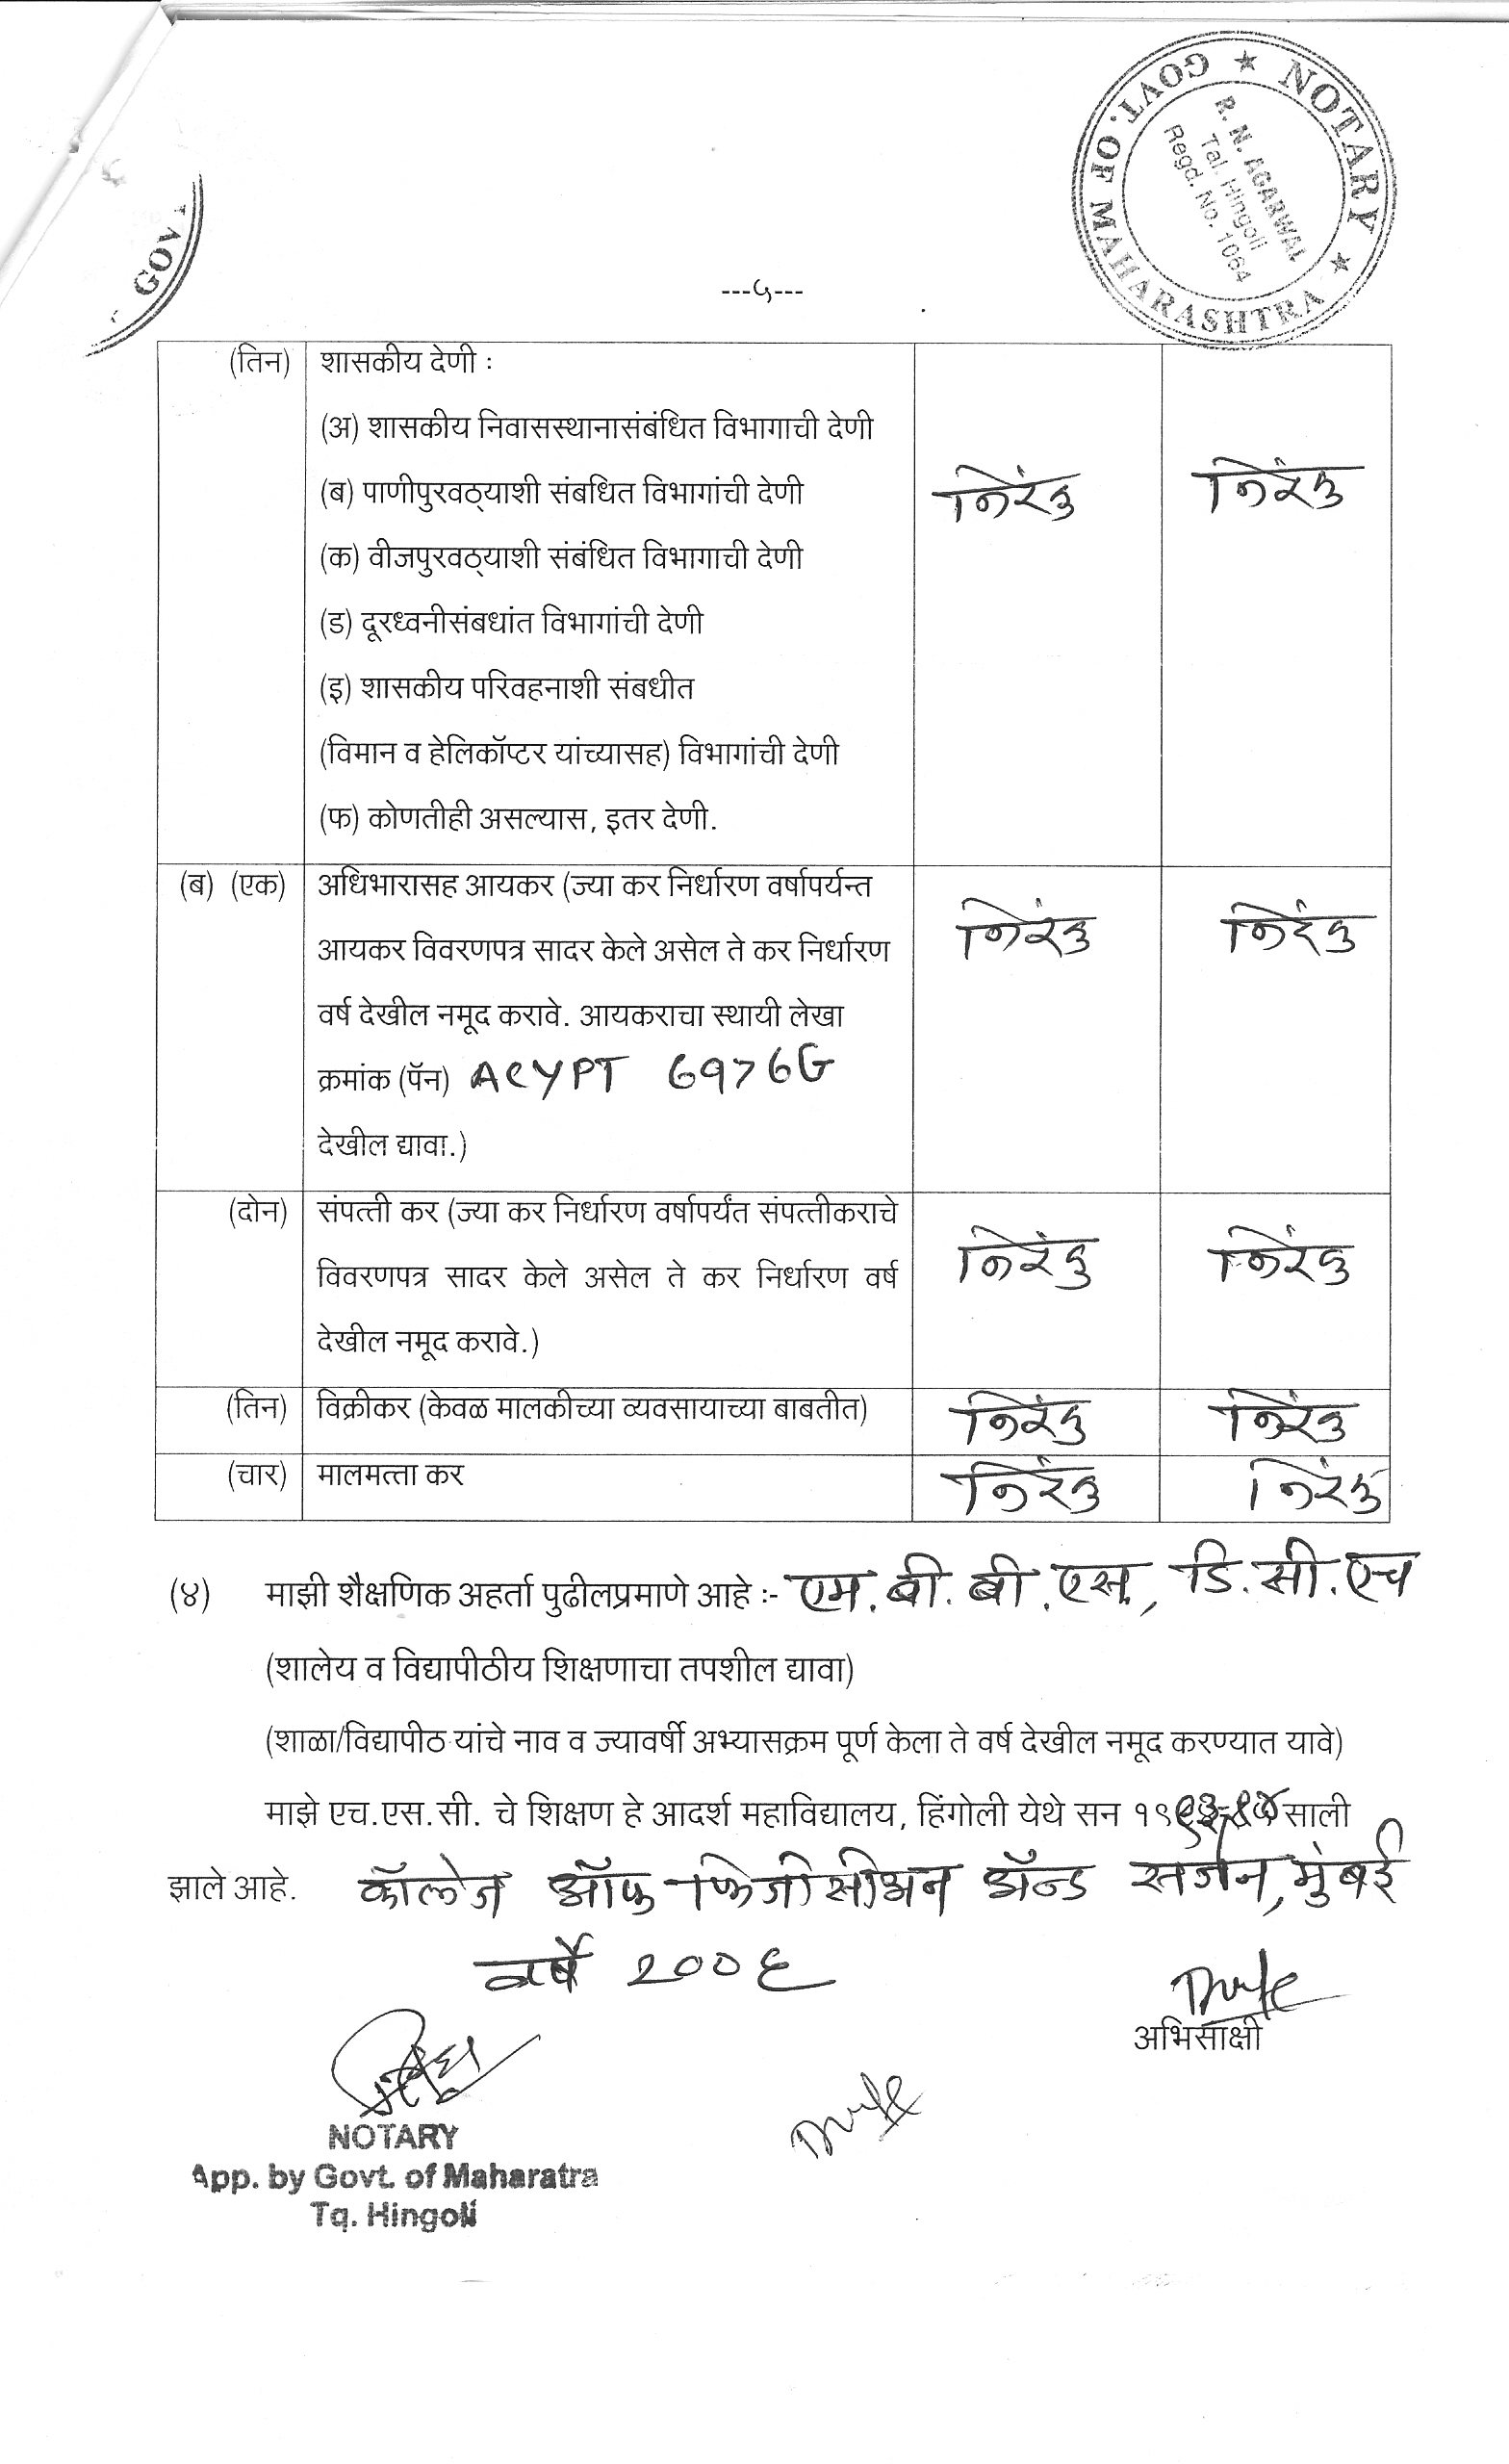 NOTARY ★ GOVT. OF MAHARASHTRA ★
R. N. AGARWAL
Tal. Hingoli
Regd. No. 1064
GOV
---५---
(तिन) शासकीय देणी :
(अ) शासकीय निवासस्थानासंबंधित विभागाची देणी
(ब) पाणीपुरवठ्याशी संबधित विभागांची देणी निरंक निरंक
(क) वीजपुरवठ्याशी संबंधित विभागाची देणी
(ड) दूरध्वनीसंबधांत विभागांची देणी
(इ) शासकीय परिवहनाशी संबधीत
(विमान व हेलिकॉप्टर यांच्यासह) विभागांची देणी
(फ) कोणतीही असल्यास, इतर देणी.
(ब) (एक) अधिभारासह आयकर (ज्या कर निर्धारण वर्षापर्यन्त निरंक निरंक
आयकर विवरणपत्र सादर केले असेल ते कर निर्धारण
वर्ष देखील नमूद करावे. आयकराचा स्थायी लेखा
क्रमांक (पॅन) ACYPT 6976G
देखील द्यावा.)
(दोन) संपत्ती कर (ज्या कर निर्धारण वर्षापर्यंत संपत्तीकराचे निरंक निरंक
विवरणपत्र सादर केले असेल ते कर निर्धारण वर्ष
देखील नमूद करावे.)
(तिन) विक्रीकर (केवळ मालकीच्या व्यवसायाच्या बाबतीत) निरंक निरंक
(चार) मालमत्ता कर निरंक निरंक
(४) माझी शैक्षणिक अहर्ता पुढीलप्रमाणे आहे :- एम.बी.बी.एस, डि.सी.एच
(शालेय व विद्यापीठीय शिक्षणाचा तपशील द्यावा)
(शाळा/विद्यापीठ यांचे नाव व ज्यावर्षी अभ्यासक्रम पूर्ण केला ते वर्ष देखील नमूद करण्यात यावे)
माझे एच.एस.सी. चे शिक्षण हे आदर्श महाविद्यालय, हिंगोली येथे सन साली
झाले आहे. कॉलेज ऑफ फिजीसीअन ॲन्ड सर्जन, मुंबई
वर्षे २००६
अभिसाक्षी
NOTARY
App. by Govt. of Maharatra
Tq. Hingoli